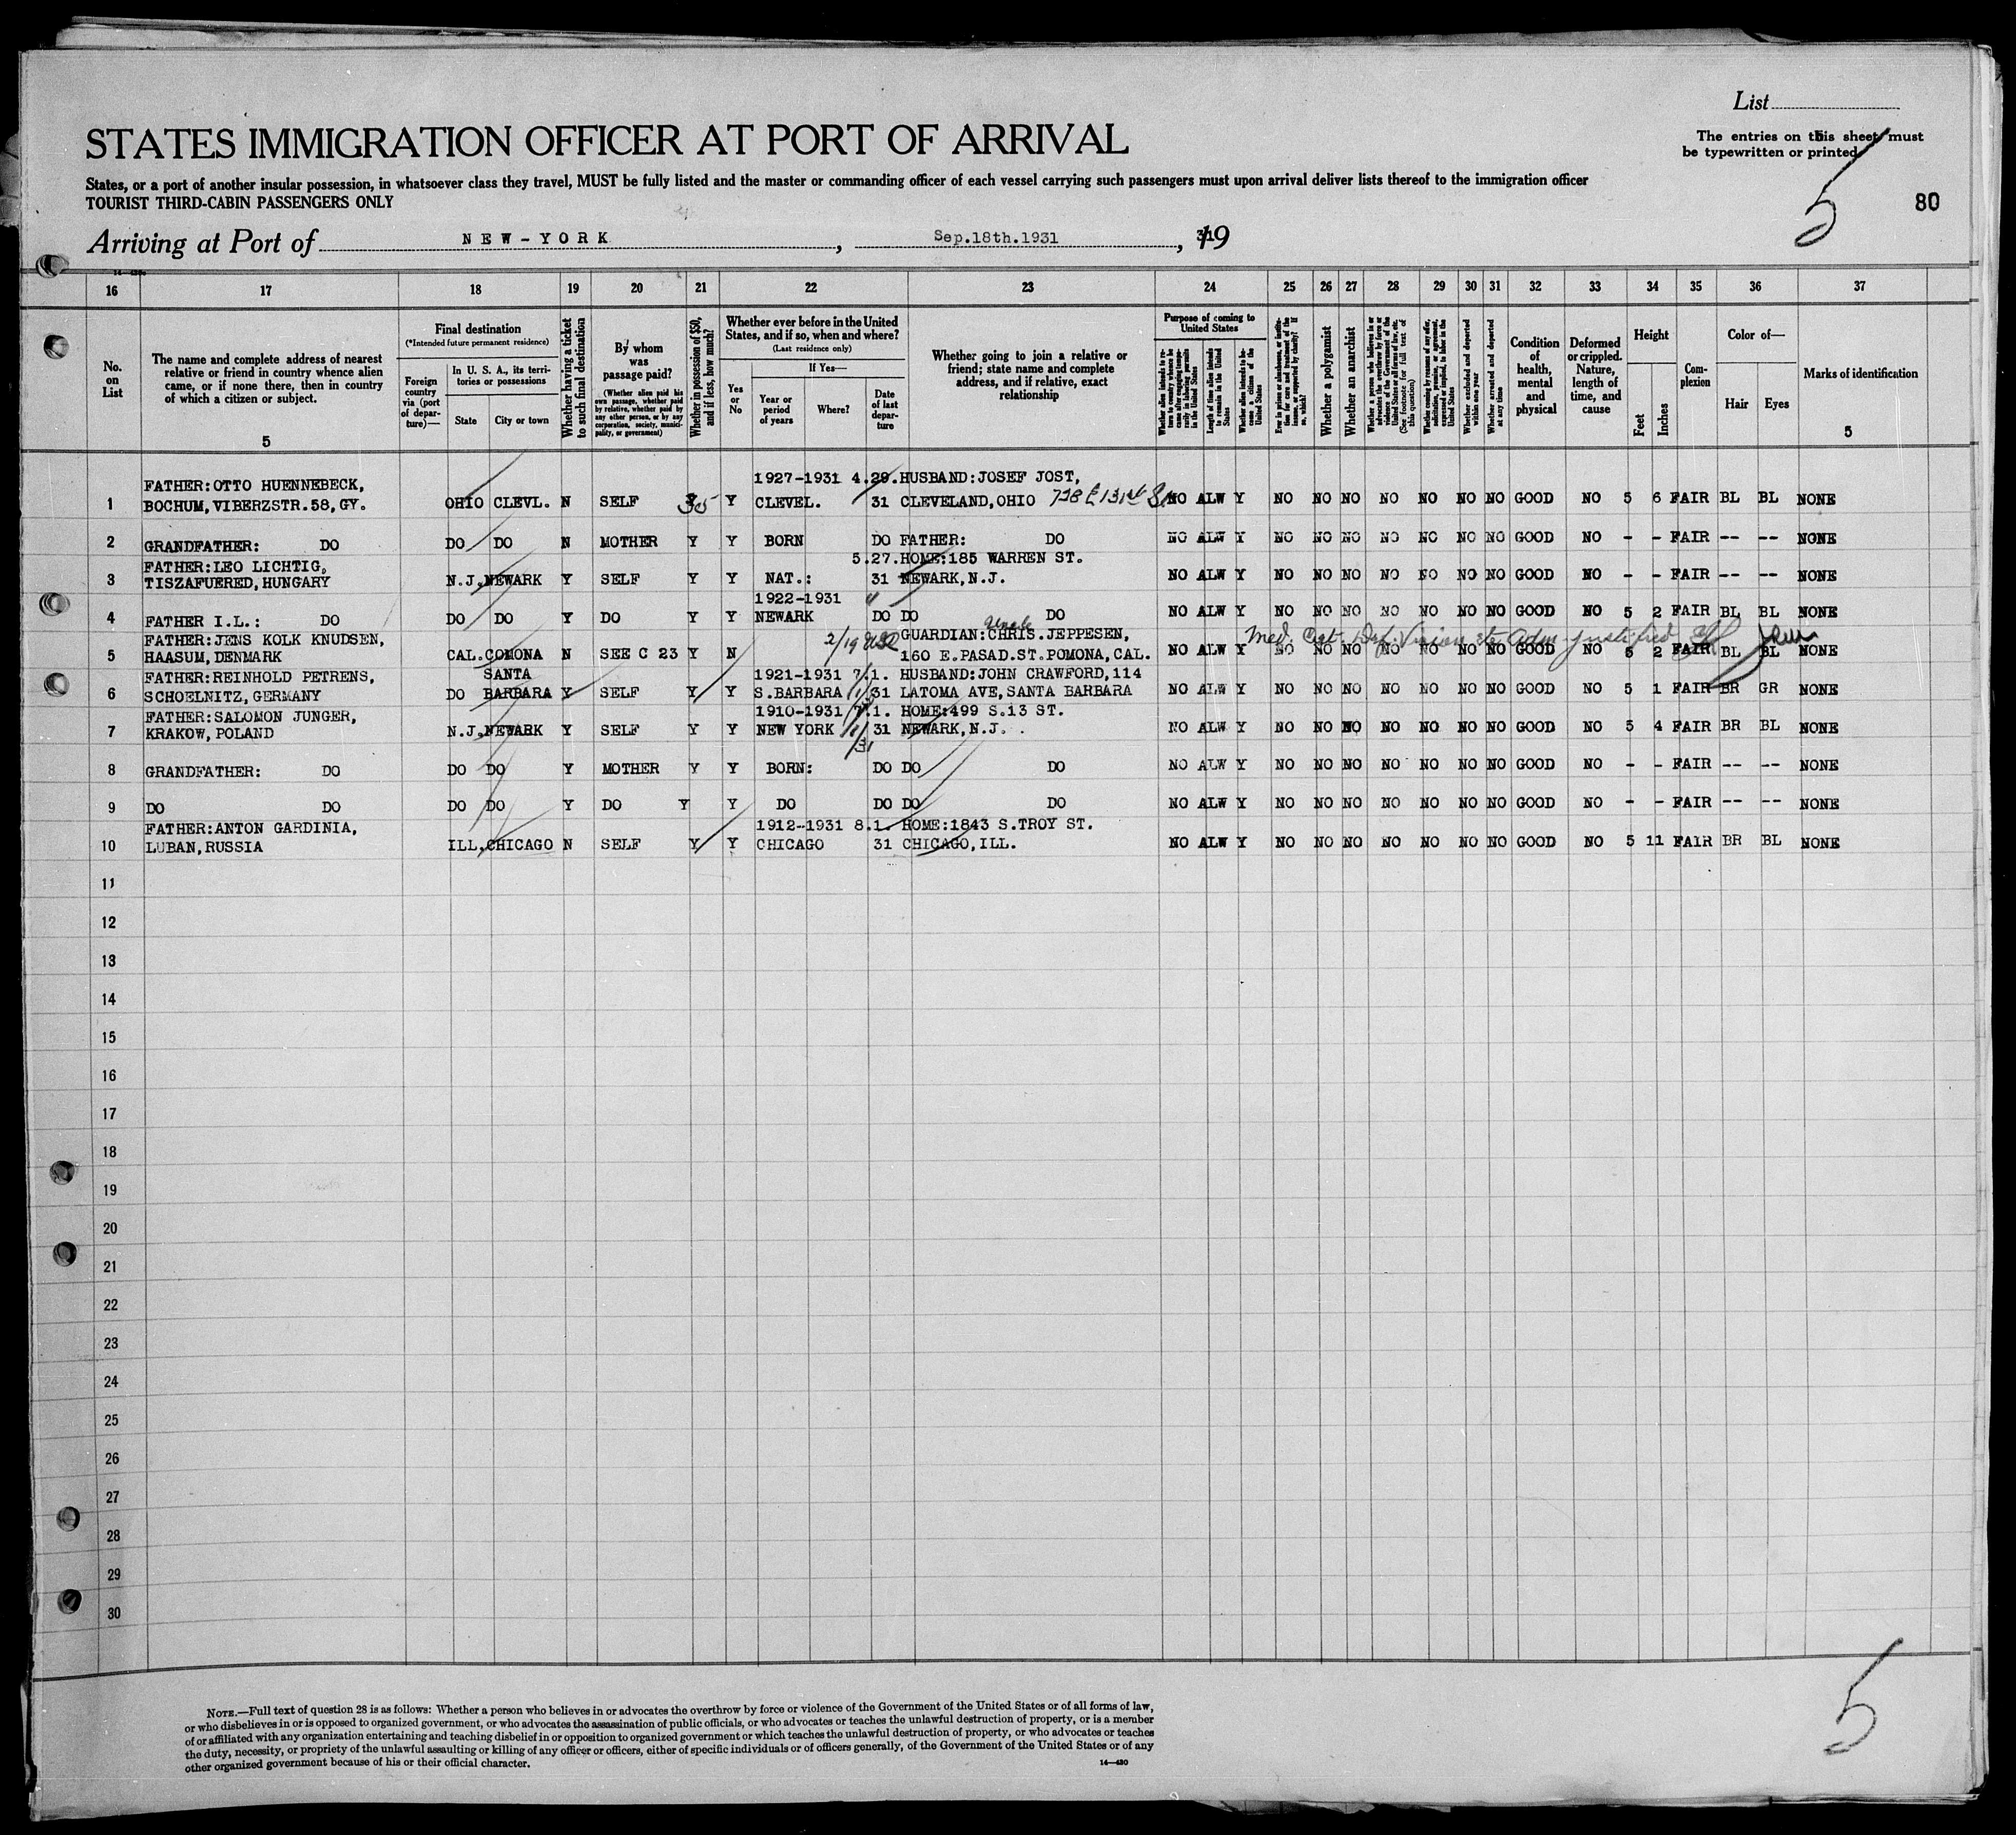 List
STATES IMMIGRATION OFFICER AT PORT OF ARRIVAL
The entries on this sheet must
be typewritten or printed
5
States, or a port of another insular possession, in whatsoever class they travel, MUST be fully listed and the master or commanding officer of each vessel carrying such passengers must upon arrival deliver lists thereof to the immigration officer
TOURIST THIRD-CABIN PASSENGERS ONLY
5
80
Arriving at Port of NEW-YORK, Sep.18th.1931, 1931
14-430
16 17 18 19 20 21 22 23 24 25 26 27 28 29 30 31 32 33 34 35 36 37
No. on List
The name and complete address of nearest relative or friend in country whence alien came, or if none there, then in country of which a citizen or subject.
5
Final destination
(*Intended future permanent residence)
Foreign country via (port of departure)—
In U. S. A., its territories or possessions
State
City or town
Whether having a ticket to such final destination
By whom was passage paid?
(Whether alien paid his own passage, whether paid by relative, whether paid by any other person, or by any corporation, society, municipality, or government)
Whether in possession of $50, and if less, how much?
Whether ever before in the United States, and if so, when and where?
(Last residence only)
Yes or No
If Yes—
Year or period of years
Where?
Date of last departure
Whether going to join a relative or friend; state name and complete address, and if relative, exact relationship
Purpose of coming to United States
Whether alien intends to return to country whence he came after engaging temporarily in laboring pursuits in the United States
Length of time alien intends to remain in the United States
Whether alien intends to become a citizen of the United States
Ever in prison or almshouse, or institution for care and treatment of the insane, or supported by charity? If so, which?
Whether a polygamist
Whether an anarchist
Whether a person who believes in or advocates the overthrow by force or violence of the Government of the United States or all forms of law, etc. (See footnote for full text of this question)
Whether coming by reason of any offer, solicitation, promise, or agreement, expressed or implied, to labor in the United States
Whether excluded and deported within one year
Whether arrested and deported at any time
Condition of health, mental and physical
Deformed or crippled. Nature, length of time, and cause
Height
Feet
Inches
Complexion
Color of—
Hair
Eyes
Marks of identification
5
1 FATHER:OTTO HUENNEBECK, 1927-1931 4.29. HUSBAND:JOSEF JOST,
BOCHUM,VIBERZSTR.58,GY. OHIO CLEVL. N SELF 35 Y CLEVEL. 31 CLEVELAND,OHIO 728 E 131st St NO ALW Y NO NO NO NO NO NO NO GOOD NO 5 6 FAIR BL BL NONE
2 GRANDFATHER: DO DO DO N MOTHER Y Y BORN DO FATHER: DO NO ALW Y NO NO NO NO NO NO NO GOOD NO - - FAIR -- -- NONE
3 FATHER:LEO LICHTIG, 5.27. HOME:185 WARREN ST.
TISZAFUERED,HUNGARY N.J. NEWARK Y SELF Y Y NAT.: 31 NEWARK,N.J. NO ALW Y NO NO NO NO NO NO NO GOOD NO - - FAIR -- -- NONE
1922-1931
4 FATHER I.L.: DO DO DO Y DO Y Y NEWARK DO DO DO NO ALW Y NO NO NO NO NO NO NO GOOD NO 5 2 FAIR BL BL NONE
Uncle
5 FATHER:JENS KOLK KNUDSEN, 2/19 GUARDIAN:CHRIS.JEPPESEN, Med. Cert. Def. Vision etc. Adm. Justified
HAASUM,DENMARK CAL. COMONA N SEE C 23 Y N 160 E.PASAD.ST.POMONA,CAL. NO ALW Y NO NO NO NO NO NO NO GOOD NO 5 2 FAIR BL BL NONE
6 FATHER:REINHOLD PETRENS, SANTA 1921-1931 7.1. HUSBAND:JOHN CRAWFORD,114
SCHOELNITZ,GERMANY DO BARBARA Y SELF Y Y S.BARBARA 31 LATOMA AVE,SANTA BARBARA NO ALW Y NO NO NO NO NO NO NO GOOD NO 5 1 FAIR BR GR NONE
7 FATHER:SALOMON JUNGER, 1910-1931 7.1. HOME:499 S.13 ST.
KRAKOW,POLAND N.J. NEWARK Y SELF Y Y NEW YORK 31 NEWARK,N.J. NO ALW Y NO NO NO NO NO NO NO GOOD NO 5 4 FAIR BR BL NONE
8 GRANDFATHER: DO DO DO Y MOTHER Y Y BORN: DO DO DO NO ALW Y NO NO NO NO NO NO NO GOOD NO - - FAIR -- -- NONE
9 DO DO DO DO Y DO Y Y DO DO DO DO NO ALW Y NO NO NO NO NO NO NO GOOD NO - - FAIR -- -- NONE
10 FATHER:ANTON GARDINIA, 1912-1931 8.1. HOME:1843 S.TROY ST.
LUBAN,RUSSIA ILL. CHICAGO N SELF Y Y CHICAGO 31 CHICAGO,ILL. NO ALW Y NO NO NO NO NO NO NO GOOD NO 5 11 FAIR BR BL NONE
11
12
13
14
15
16
17
18
19
20
21
22
23
24
25
26
27
28
29
30
NOTE.—Full text of question 28 is as follows: Whether a person who believes in or advocates the overthrow by force or violence of the Government of the United States or of all forms of law,
or who disbelieves in or is opposed to organized government, or who advocates the assassination of public officials, or who advocates or teaches the unlawful destruction of property, or is a member
of or affiliated with any organization entertaining and teaching disbelief in or opposition to organized government or which teaches the unlawful destruction of property, or who advocates or teaches
the duty, necessity, or propriety of the unlawful assaulting or killing of any officer or officers, either of specific individuals or of officers generally, of the Government of the United States or of any
other organized government because of his or their official character.
14—430
5